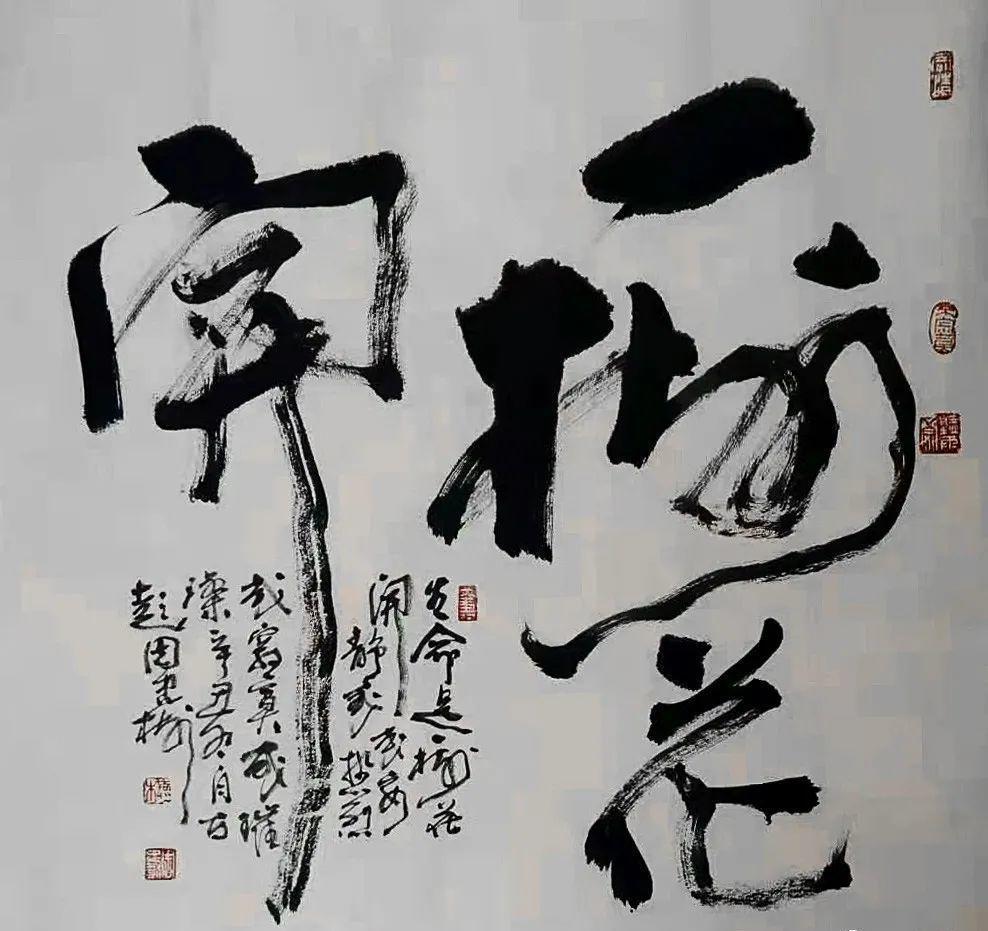 一树花
开
生命是一树花
开或安
静或热烈
或寂寞或璀
璨辛丑冬月